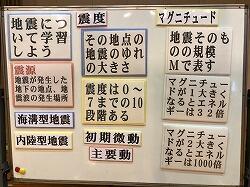 地震につ
いて学習
しよう
震源
地震が発生した
地下の地点、地
震波の発生場所
海溝型地震
内陸型地震
震度
その地点の
地震のゆれ
の大きさ
震度は0～
7までの10
段階ある
初期微動
主要動
マグニチュード
地震そのも
のの規模
Mで表す
マグニチュー
ドが1大きく
なるとエネル
ギーは32倍
マグニチュー
ドが2大きく
なるとエネル
ギーは1000倍